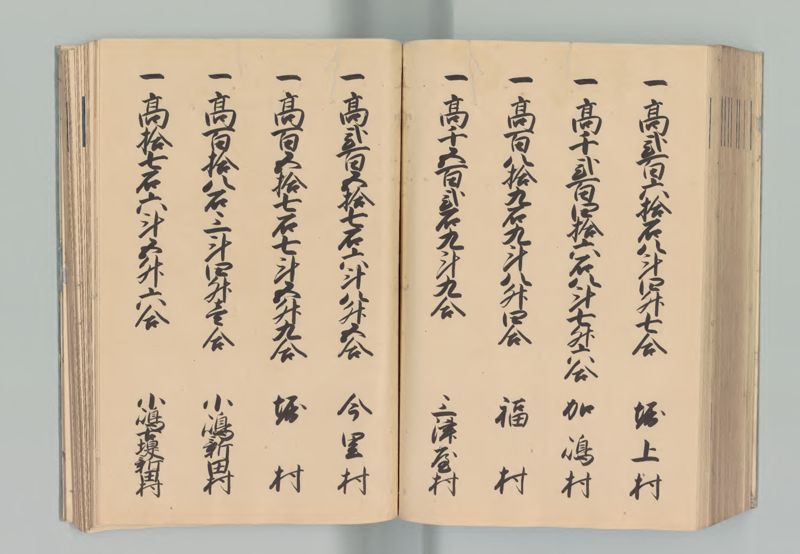 一高弐百六拾石八斗四升七合 堀上村
一高千弐百四拾六石八斗七升六合 加嶋村
一高百八拾九石九斗八升四合 福村
一高千五百弐石九斗九合 三津屋村
一高弐百五拾七石六斗八升五合 今里村
一高百五拾七石七斗五升九合 堀村
一高百拾八石三斗四升壱合 小嶋新田村
一高拾七石六斗五升六合 小嶋古堤新田村